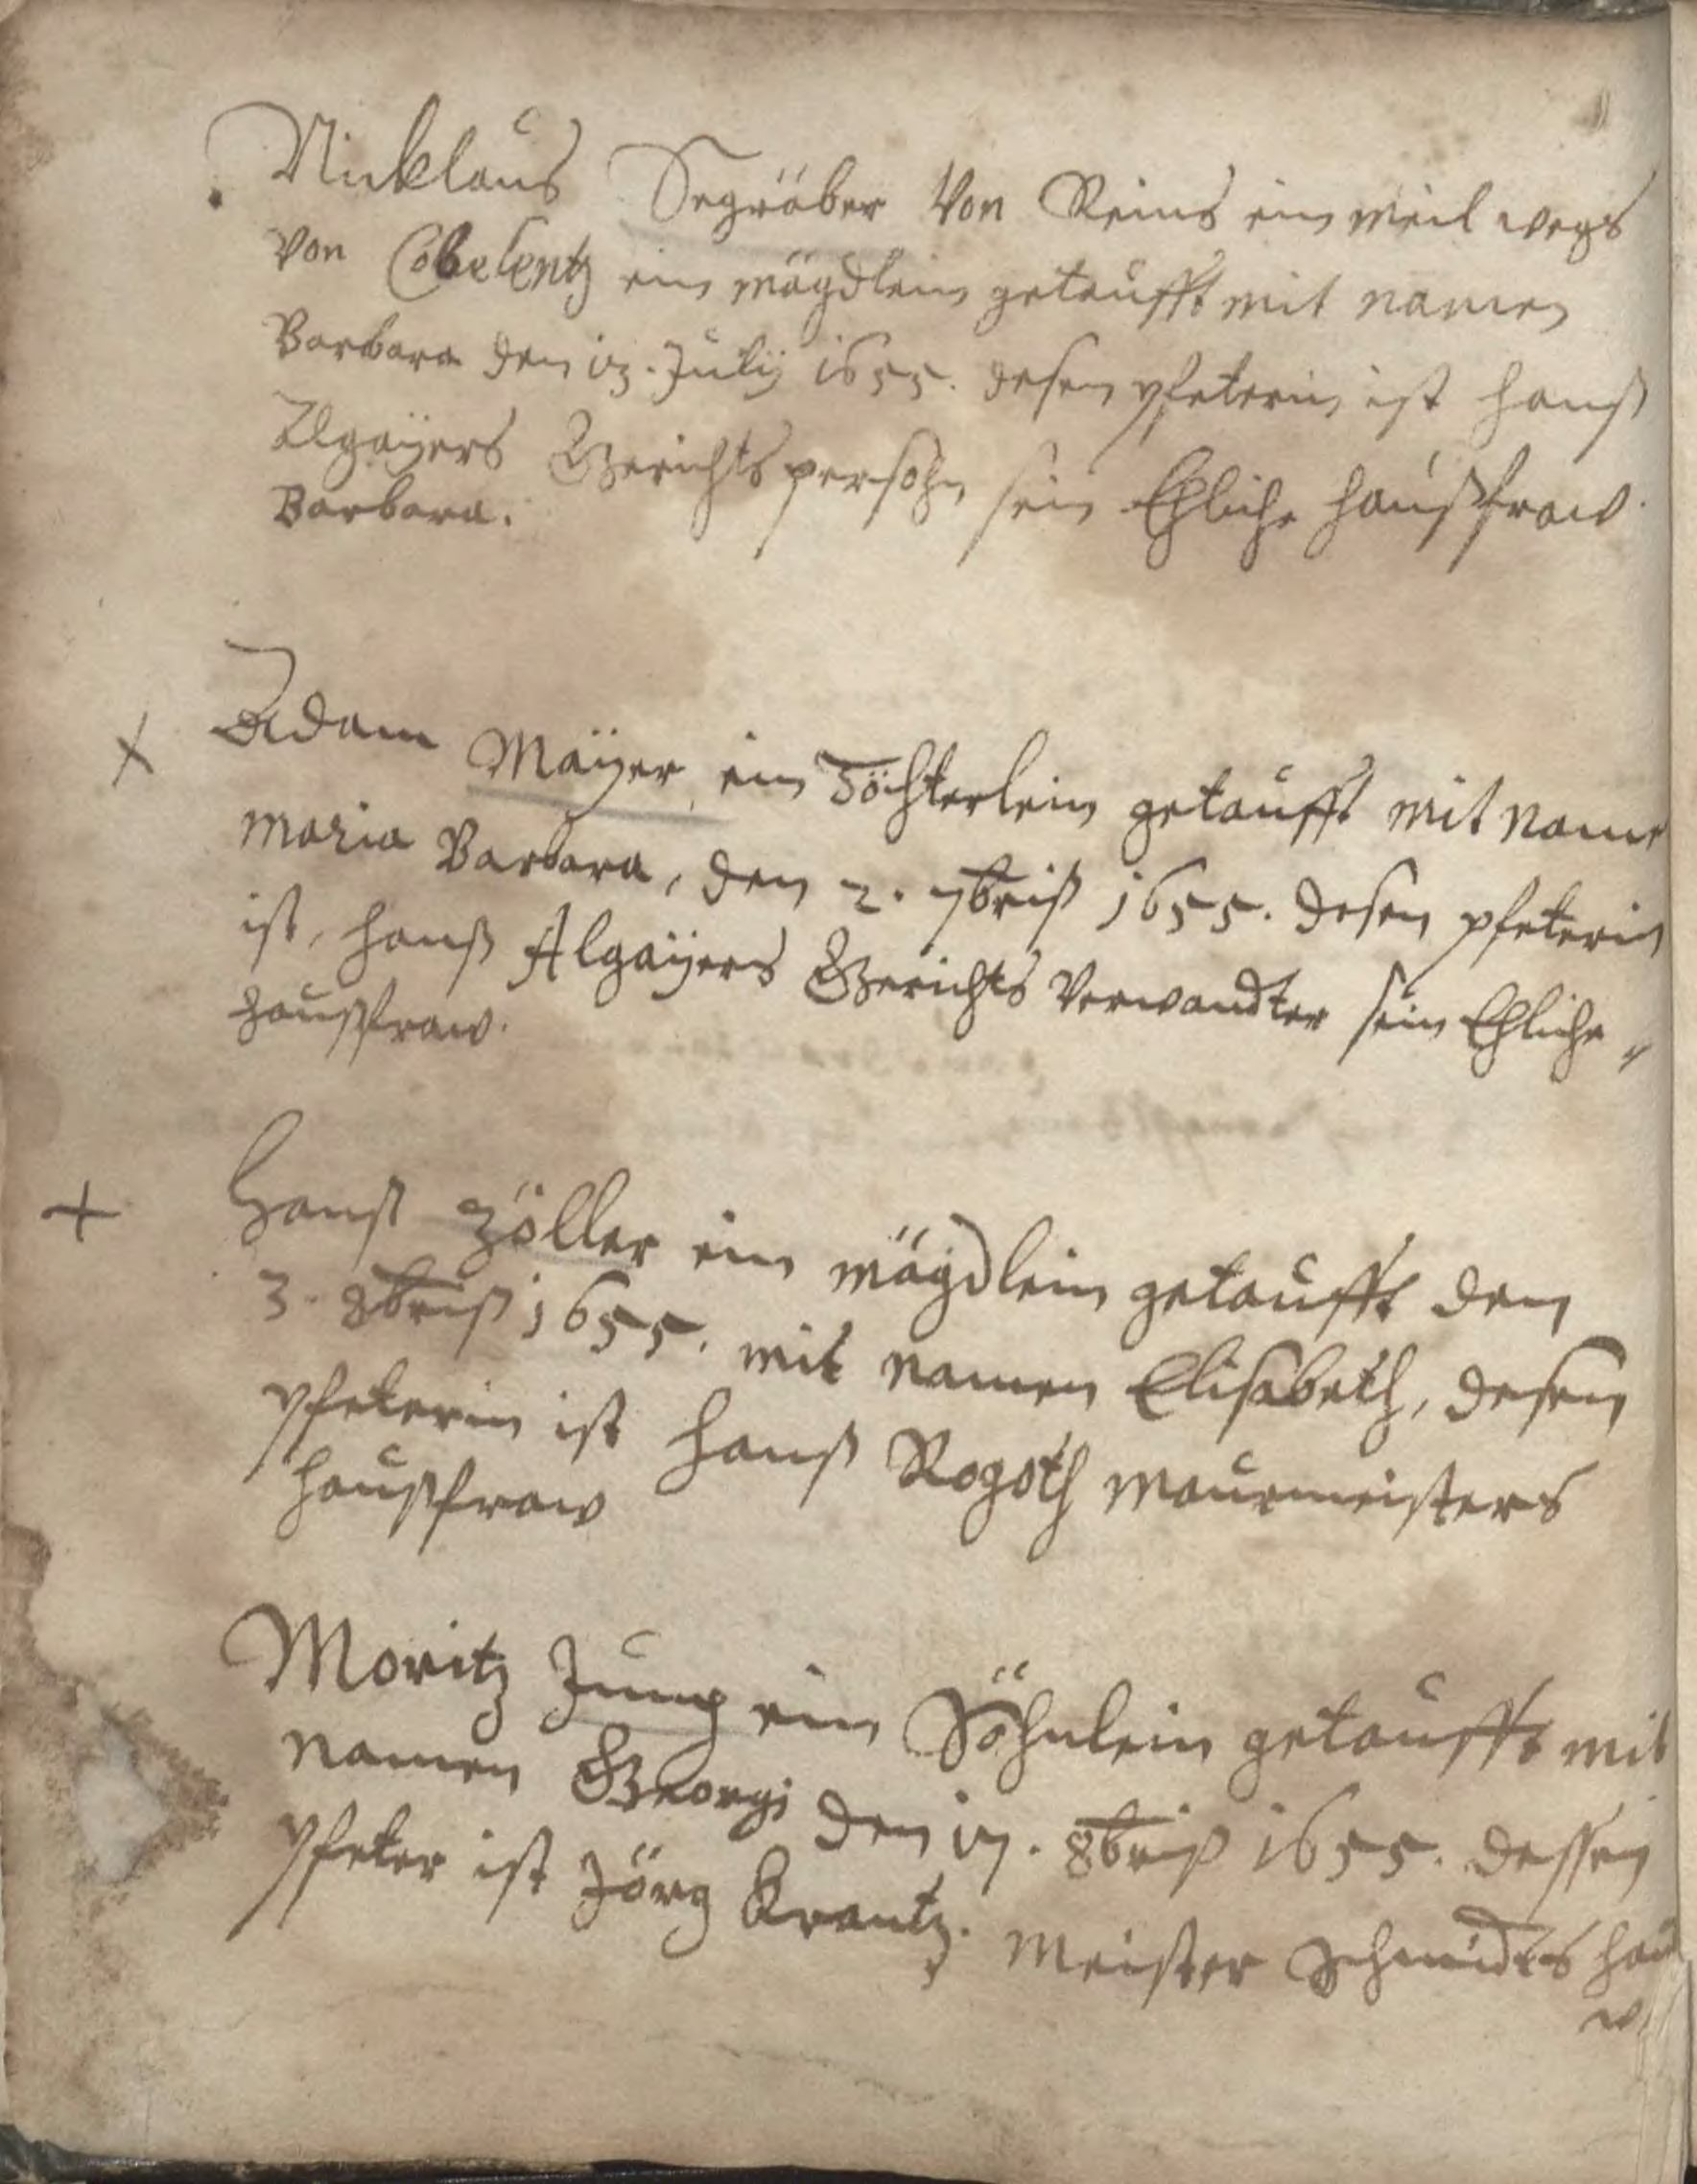 Nicklaus Segräber Von Reins ein meil wegs
von Cobelentz ein mägdlein getaufft mit namen
Barbara den 13. Julij 1655. desen pfeterin ist hanß
Algaÿers Gerichts persohn sein Ehliche haußfraw.
Barbara.
Adam Maÿer ein Töchterlein getaufft mit name
Maria Barbara, den 2. 7briß 1655. desen pfeterin
ist, hanß Algaÿers Gerichts Verwandter sein Ehliche
haußfraw.
Hanß Zöller ein mägdlein getaufft den
3. 8briß 1655. mit namen Elisabeth, desen
pfeterin ist hanß Rogoth maurmeisters
haußfraw
Moritz Jung ein Söhnlein getaufft mit
namen Georgi den 17. 8briß 1655. dessen
pfeter ist Jörg Krantz. Meister Schmidts